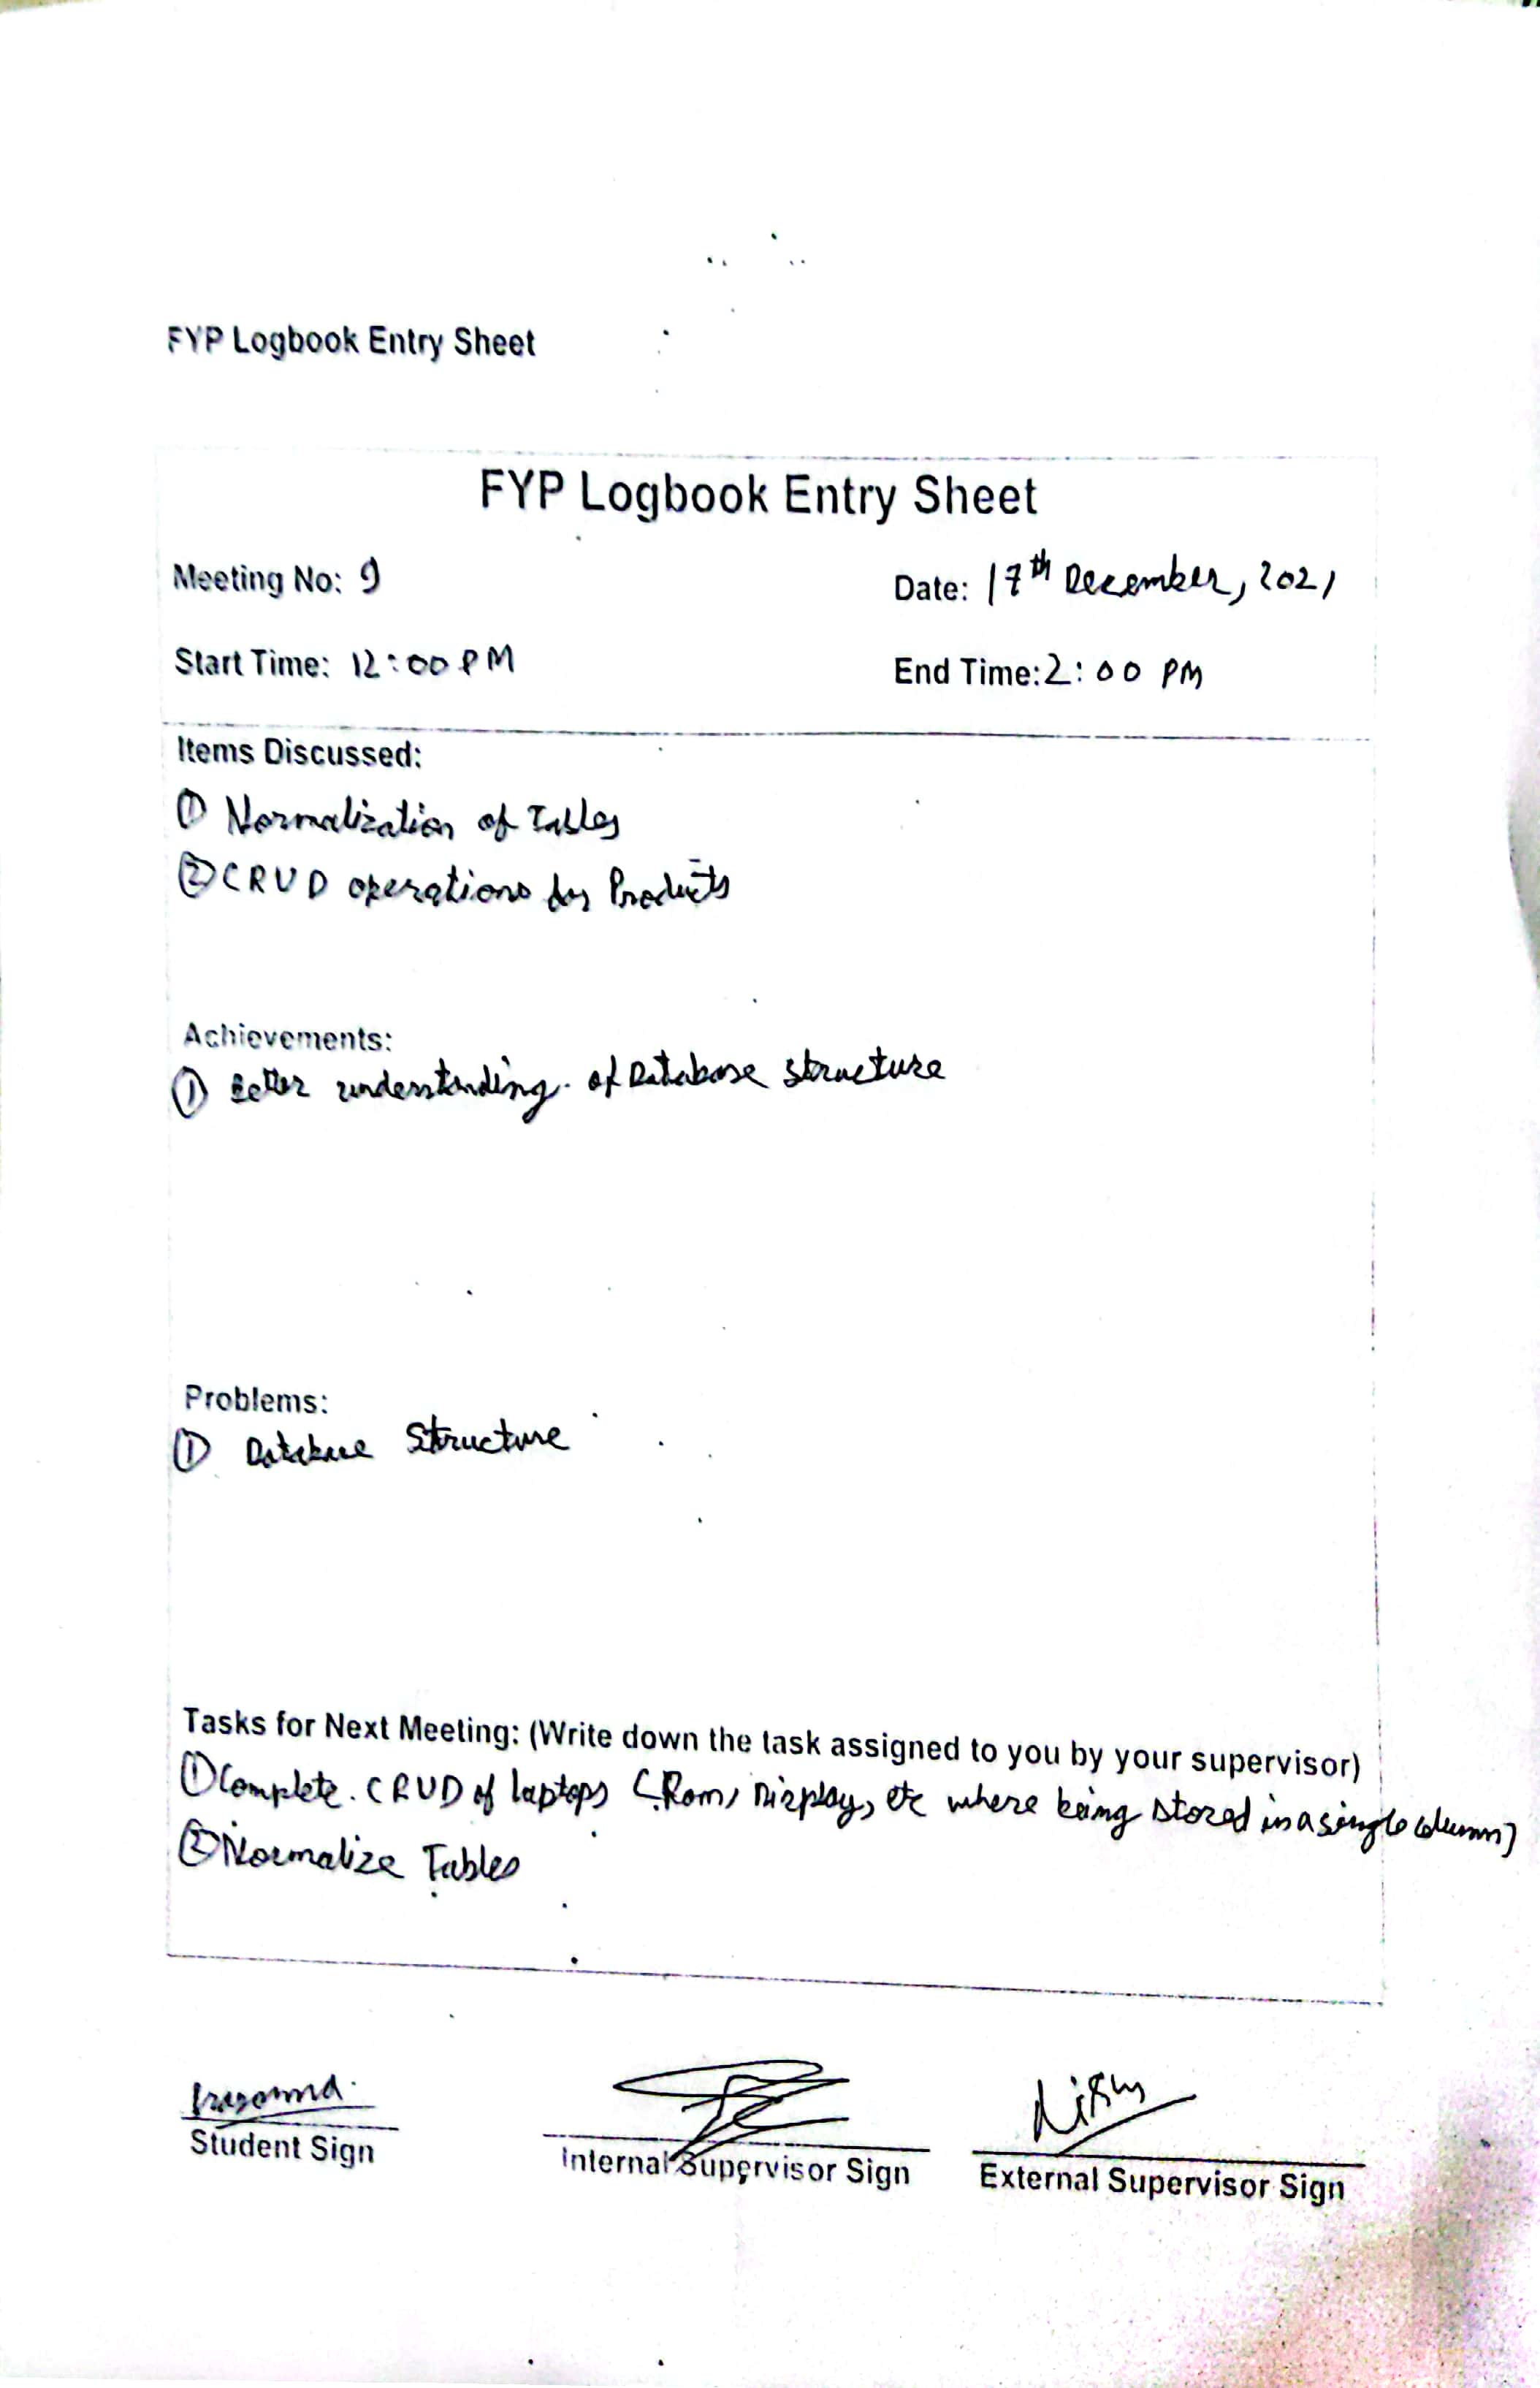 FYP Logbook Entry Sheet
FYP Logbook Entry Sheet
Meeting No: 9
Date: 17th December, 2021
Start Time: 12:00 PM
End Time: 2:00 PM
Items Discussed:
① Normalization of Tables
② CRUD operations for Products
Achievements:
① Better understanding of Database structure
Problems:
① Database Structure
Tasks for Next Meeting: (Write down the task assigned to you by your supervisor)
① Complete CRUD of laptops (Rom, Display, etc where being stored in a single column)
② Normalize Tables
Student Sign
Internal Supervisor Sign
External Supervisor Sign